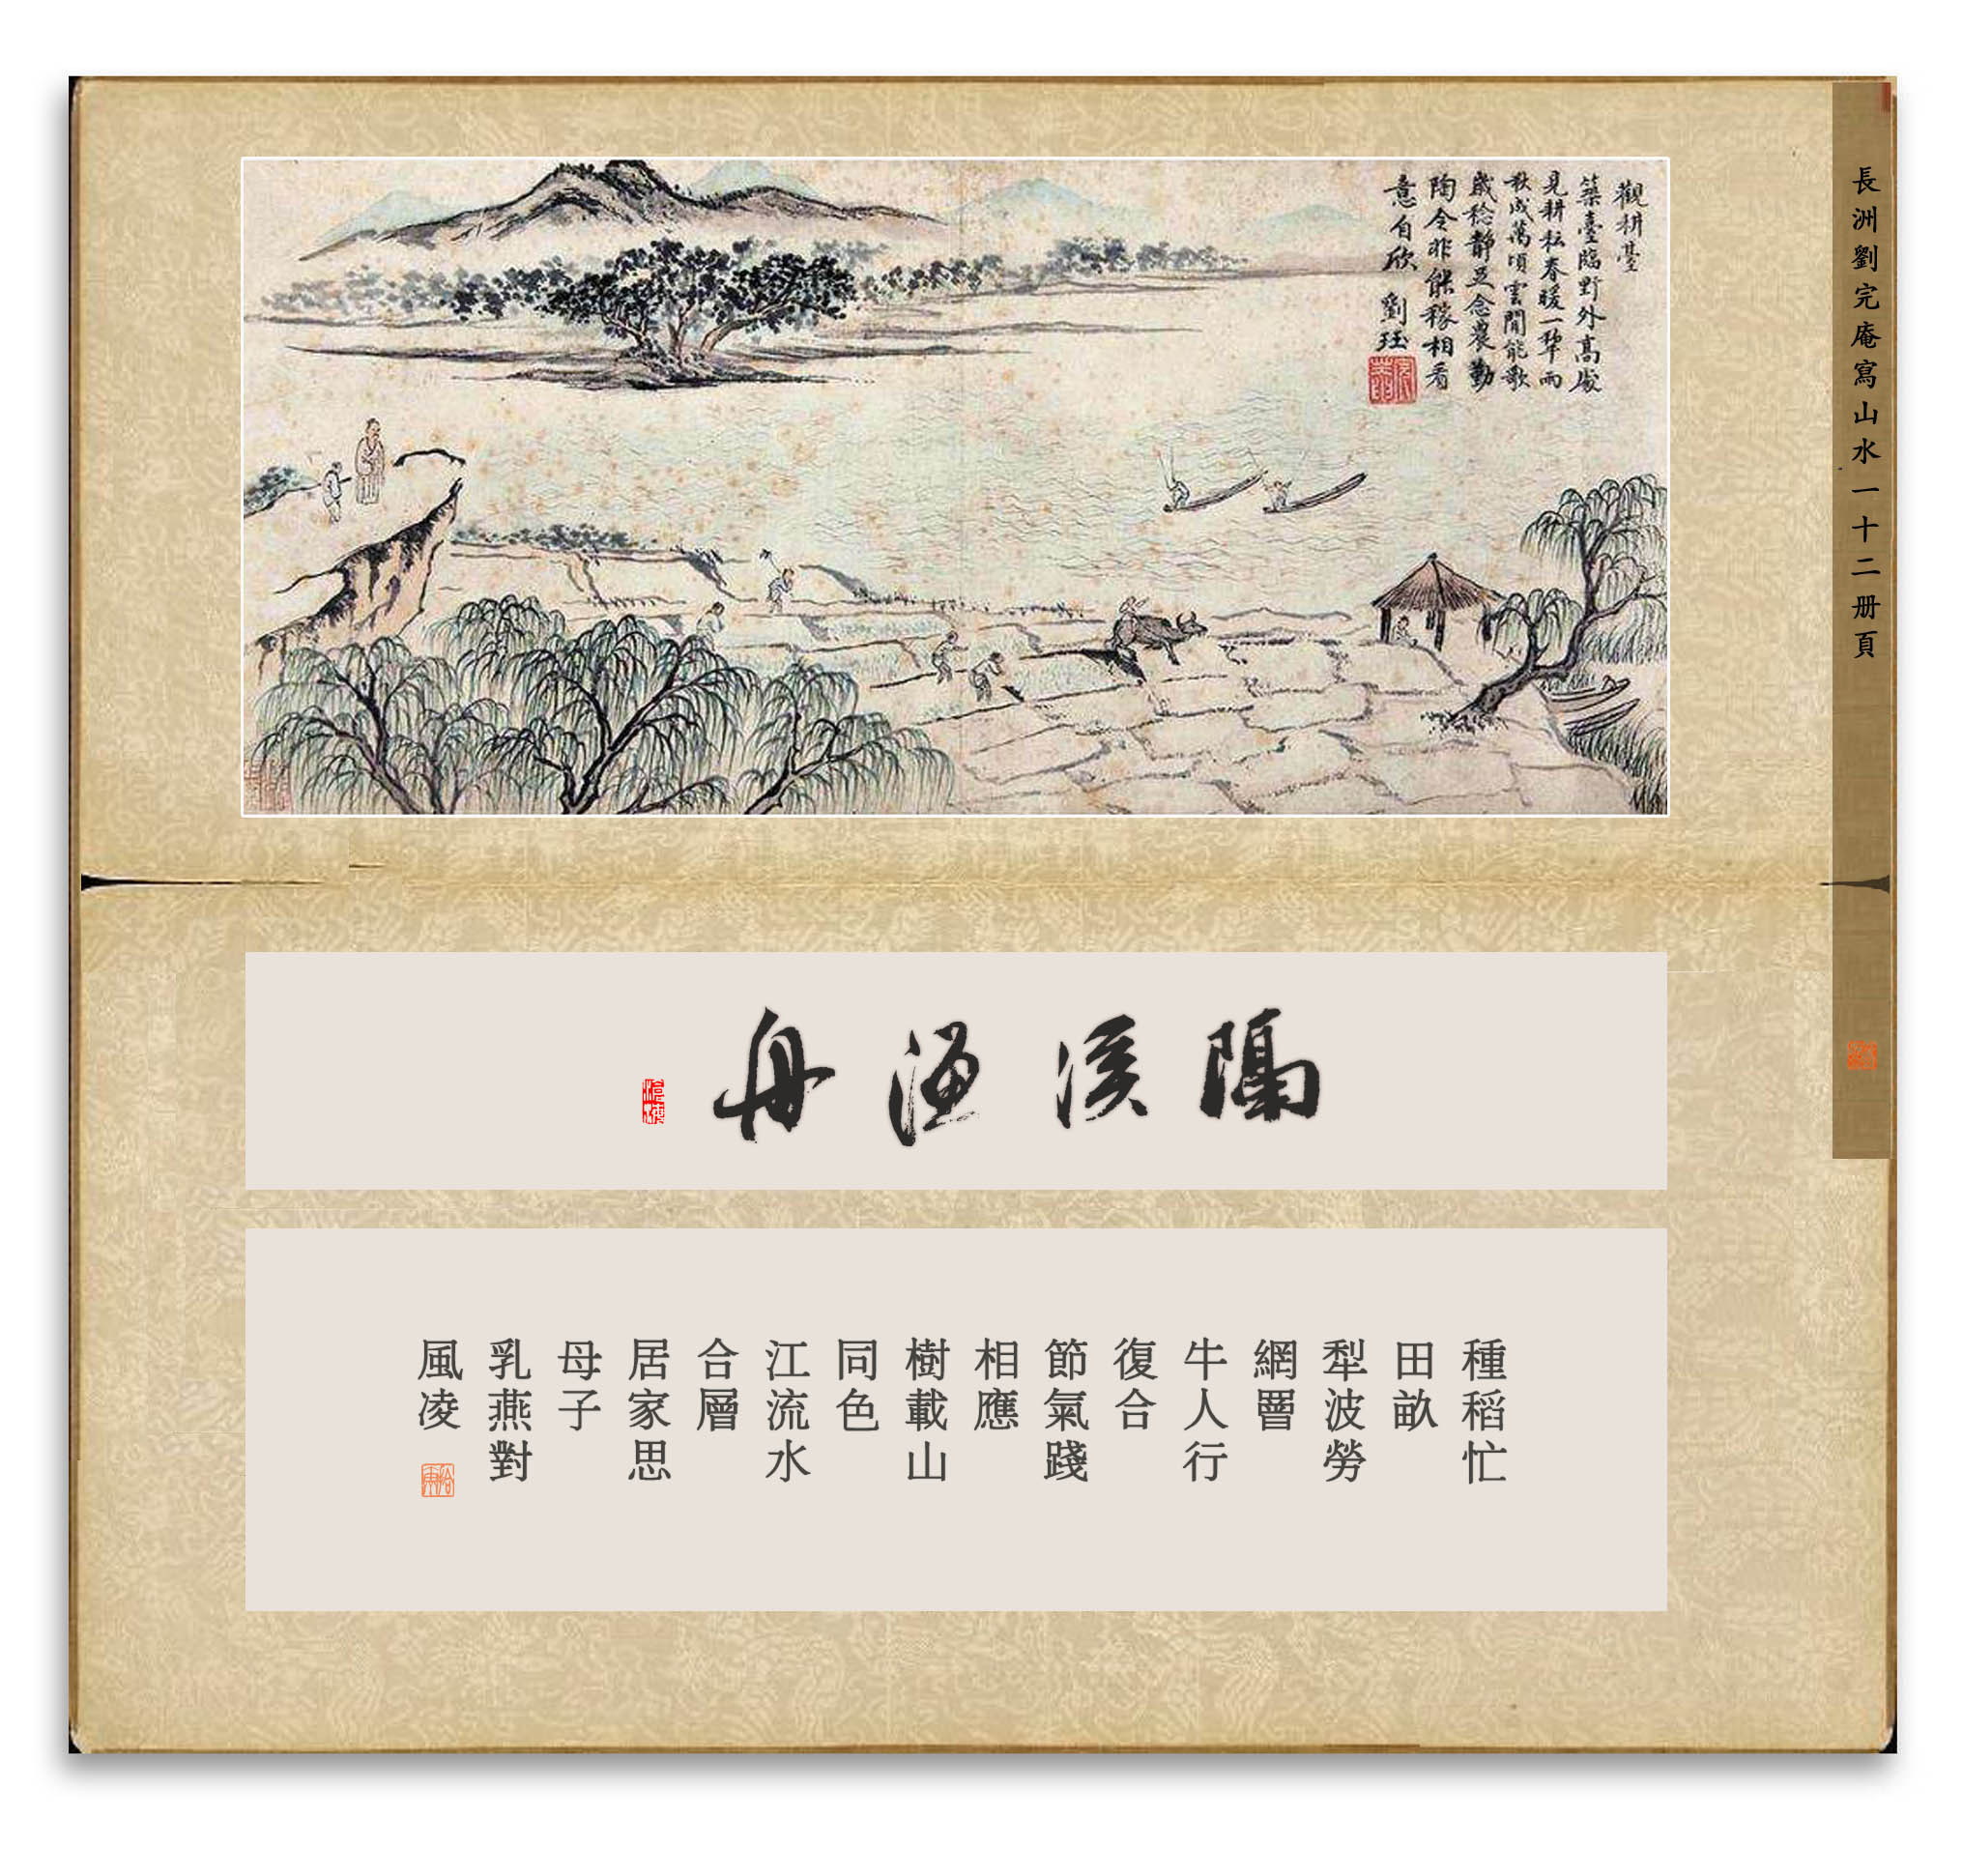 長洲劉完庵寫山水一十二册頁
觀耕臺
築臺臨野外高處
見耕耘春暖一犂雨
秋成萬頃雲閒能歌
歲稔靜足念農勤
陶令非能稼相看
意自欣 劉珏
隔溪漁舟
種稻忙
田畝
犁波勞
網罾
牛人行
復合
節氣踐
相應
樹載山
同色
江流水
合層
居家思
母子
乳燕對
風凌